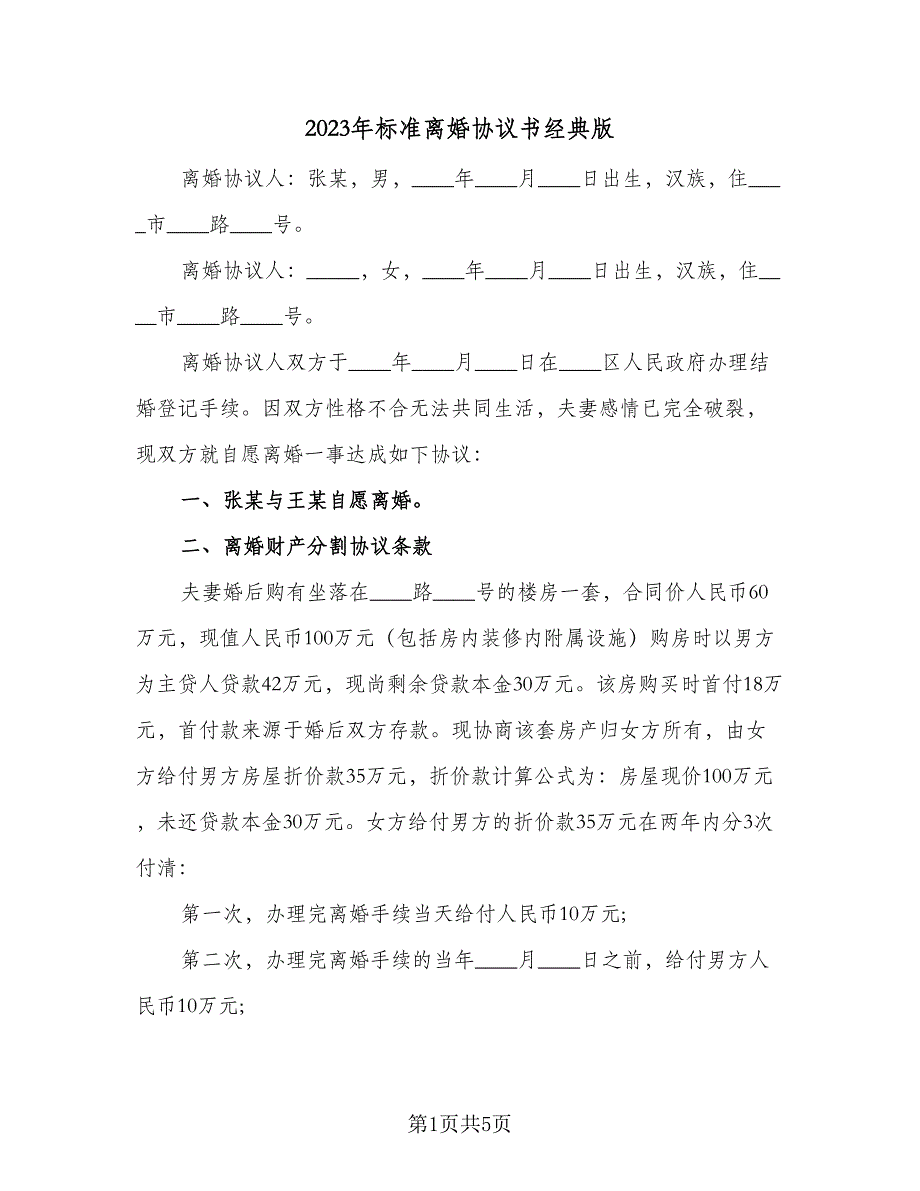 2023年标准离婚协议书经典版
离婚协议人：张某，男，____年____月____日出生，汉族，住___
_市____路____号。
离婚协议人：_____，女，____年____月____日出生，汉族，住__
__市____路____号。
离婚协议人双方于____年____月____日在____区人民政府办理结
婚登记手续。因双方性格不合无法共同生活，夫妻感情已完全破裂，
现双方就自愿离婚一事达成如下协议：
一、张某与王某自愿离婚。
二、离婚财产分割协议条款
夫妻婚后购有坐落在____路____号的楼房一套，合同价人民币60
万元，现值人民币100万元（包括房内装修内附属设施）购房时以男方
为主贷人贷款42万元，现尚剩余贷款本金30万元。该房购买时首付18万
元，首付款来源于婚后双方存款。现协商该套房产归女方所有，由女
方给付男方房屋折价款35万元，折价款计算公式为：房屋现价100万元
，未还贷款本金30万元。女方给付男方的折价款35万元在两年内分3次
付清：
第一次，办理完离婚手续当天给付人民币10万元;
第二次，办理完离婚手续的当年____月____日之前，给付男方人
民币10万元;
第1页共5页